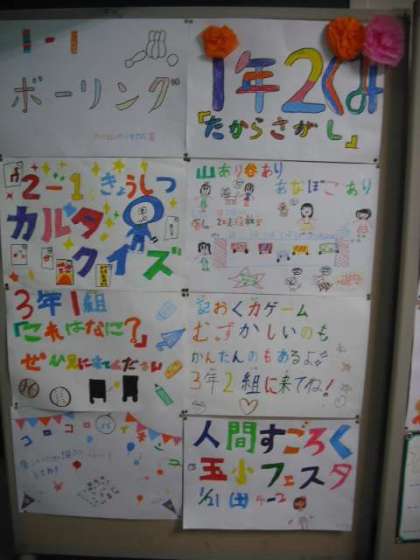 1-1
ボーリング
1年2くみ
「たからさがし」
2-1 きょうしつ
カルタ
クイズ
山あり谷あり
あなぼこあり
3年1組
「これはなに?」
ぜひ見に来てください
記おく力ゲーム
むずかしいのも
かんたんのもあるよ!!
3年2組に来てね!
コロコロ
人間すごろく
玉小フェスタ
1/21(土)4-2